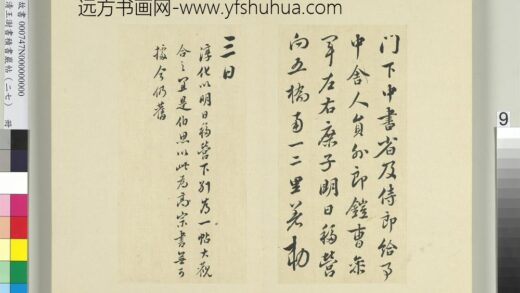 远方书画网-www.yfshuhua.com
故書000747N00000000
清王澍書積書巖帖（二七） 冊
門下中書省及侍郎給事
中舍人員外郎鎧曹參
軍左右庶子明日移營
向五橋南一二里若勅
三日
淳化以明日移營下別為一帖大觀
合之宜是伯思以此為高宗書無可
據今仍舊
9